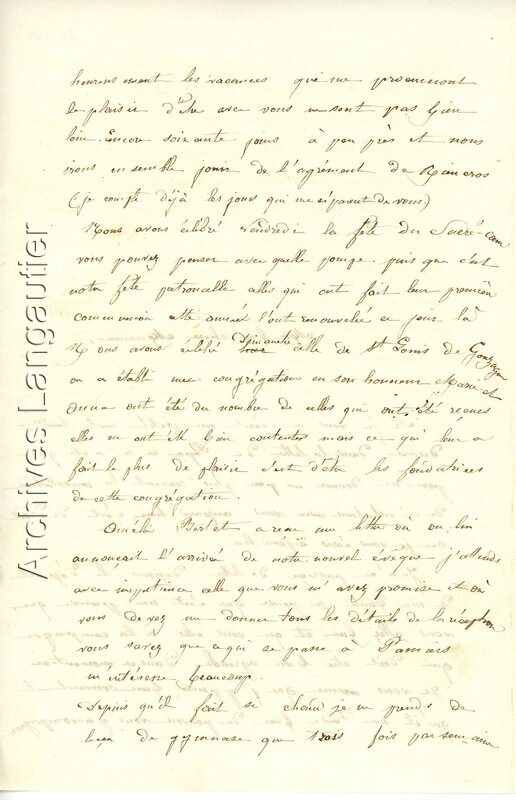 heureusement les vacances qui me procureront
le plaisir d'être avec vous ne sont pas bien
loin. Encore soixante jours à peu près et nous
irons ensemble jouir de l'agrément de Rieucros
(je compte déjà les jours qui me séparent de vous)
Nous avons célébré vendredi la fête du Sacré-cœur
vous pouvez penser avec quelle pompe puis que c'est
notre fête patronalle celles qui ont fait leur première
communion cette année l'ont renouvelée ce jour là
Nous avons célébré Dimanche celle de St Louis de Gonzague
on a établi une congrégation en son honneur Marie et
Anna ont été du nombre de celles qui ont été reçues
elles en ont été bien contentes mais ce qui leur a
fait le plus de plaisir c'est d'être les fondatrices
de cette congrégation.
Amélie Bertet a reçu une lettre où on lui
annonçait l'arrivée de notre nouvel évêque j'attends
avec impatience celle que vous m'avez promise et où
vous devez me donner tous les détails de la réception
vous savez que ce qui se passe à Pamiers
m'intéresse beaucoup.
Depuis qu'il fait si chaud je ne prends de
leçon de gymnase que trois fois par semaine
Archives Langautier